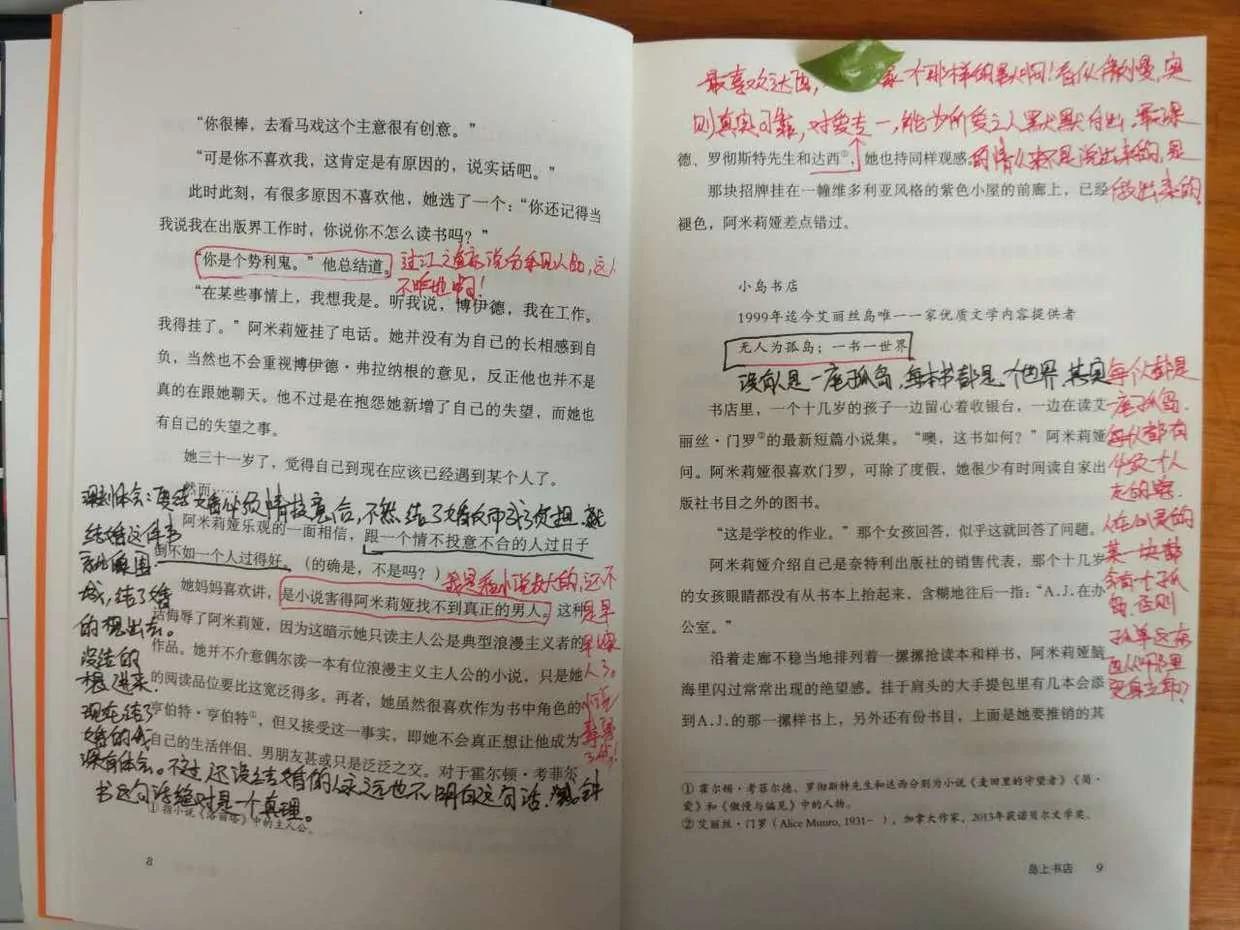 “你很棒，去看马戏这个主意很有创意。”
“可是你不喜欢我，这肯定是有原因的，说实话吧。”
此时此刻，有很多原因不喜欢他，她选了一个：“你还记得当
我说我在出版界工作时，你说你不怎么读书吗？”
“你是个势利鬼。”他总结道。
“在某些事情上，我想我是。听我说，博伊德，我在工作。
我得挂了。”阿米莉娅挂了电话。她并没有为自己的长相感到自
负，当然也不会重视博伊德·弗拉纳根的意见，反正他也并不是
真的在跟她聊天。他不过是在抱怨她新增了自己的失望，而她也
有自己的失望之事。
她三十一岁了，觉得自己到现在应该已经遇到某个人了。
然而……
阿米莉娅乐观的一面相信，跟一个情不投意不合的人过日子
倒不如一个人过得好。（的确是，不是吗？）
她妈妈喜欢讲，是小说害得阿米莉娅找不到真正的男人。这种
话侮辱了阿米莉娅，因为这暗示她只读主人公是典型浪漫主义者的
作品。她并不介意偶尔读一本有位浪漫主义主人公的小说，只是她
的阅读品位要比这宽泛得多。再者，她虽然很喜欢作为书中角色的
亨伯特·亨伯特①，但又接受这一事实，即她不会真正想让他成为
自己的生活伴侣、男朋友甚或只是泛泛之交。对于霍尔顿·考菲尔
①指小说《洛丽塔》中的主人公。
结婚这件事
就像围
城，结了婚
的想出去。
没结的
想进来。
现在结了
婚的我
深有体会。不过还没结婚的人永远也不明白这句话。钱钟
书这句话绝对是一个真理。
8
最喜欢达西，
则真实可靠，对爱专一，能为所爱之人默默付出。
的情从来不是说出来的，是
做出来的。
德、罗彻斯特先生和达西①，她也持同样观感。
那块招牌挂在一幢维多利亚风格的紫色小屋的前廊上，已经
褪色，阿米莉娅差点错过。
小岛书店
1999年迄今艾丽丝岛唯一一家优质文学内容提供者
无人为孤岛；一书一世界
没有人是一座孤岛，每本书都是一个世界。其实每个人都是
一座孤岛。
书店里，一个十几岁的孩子一边留心着收银台，一边在读艾
丽丝·门罗②的最新短篇小说集。“噢，这书如何？”阿米莉娅
问。阿米莉娅很喜欢门罗，可除了度假，她很少有时间读自家出
版社书目之外的图书。
“这是学校的作业。”那个女孩回答，似乎这就回答了问题。
阿米莉娅介绍自己是奈特利出版社的销售代表，那个十几岁
的女孩眼睛都没有从书本上抬起来，含糊地往后一指：“A.J.在办
公室。”
沿着走廊不稳当地排列着一摞摞抢读本和样书、阿米莉娅脑
海里闪过常常出现的绝望感。挂于肩头的大手提包里有几本会添
到A.J.的那一摞样书上，另外还有份书目，上面是她要推销的其
人在心灵的
某一块都
会有个孤
岛，否则
孤单这东
西从哪里
①霍尔顿·考菲尔德、罗彻斯特先生和达西分别为小说《麦田里的守望者》《简·
爱》和《傲慢与偏见》中的人物。
②艾丽丝·门罗（Alice Munro, 1931－），加拿大作家，2013年获诺贝尔文学奖。
岛上书店 9